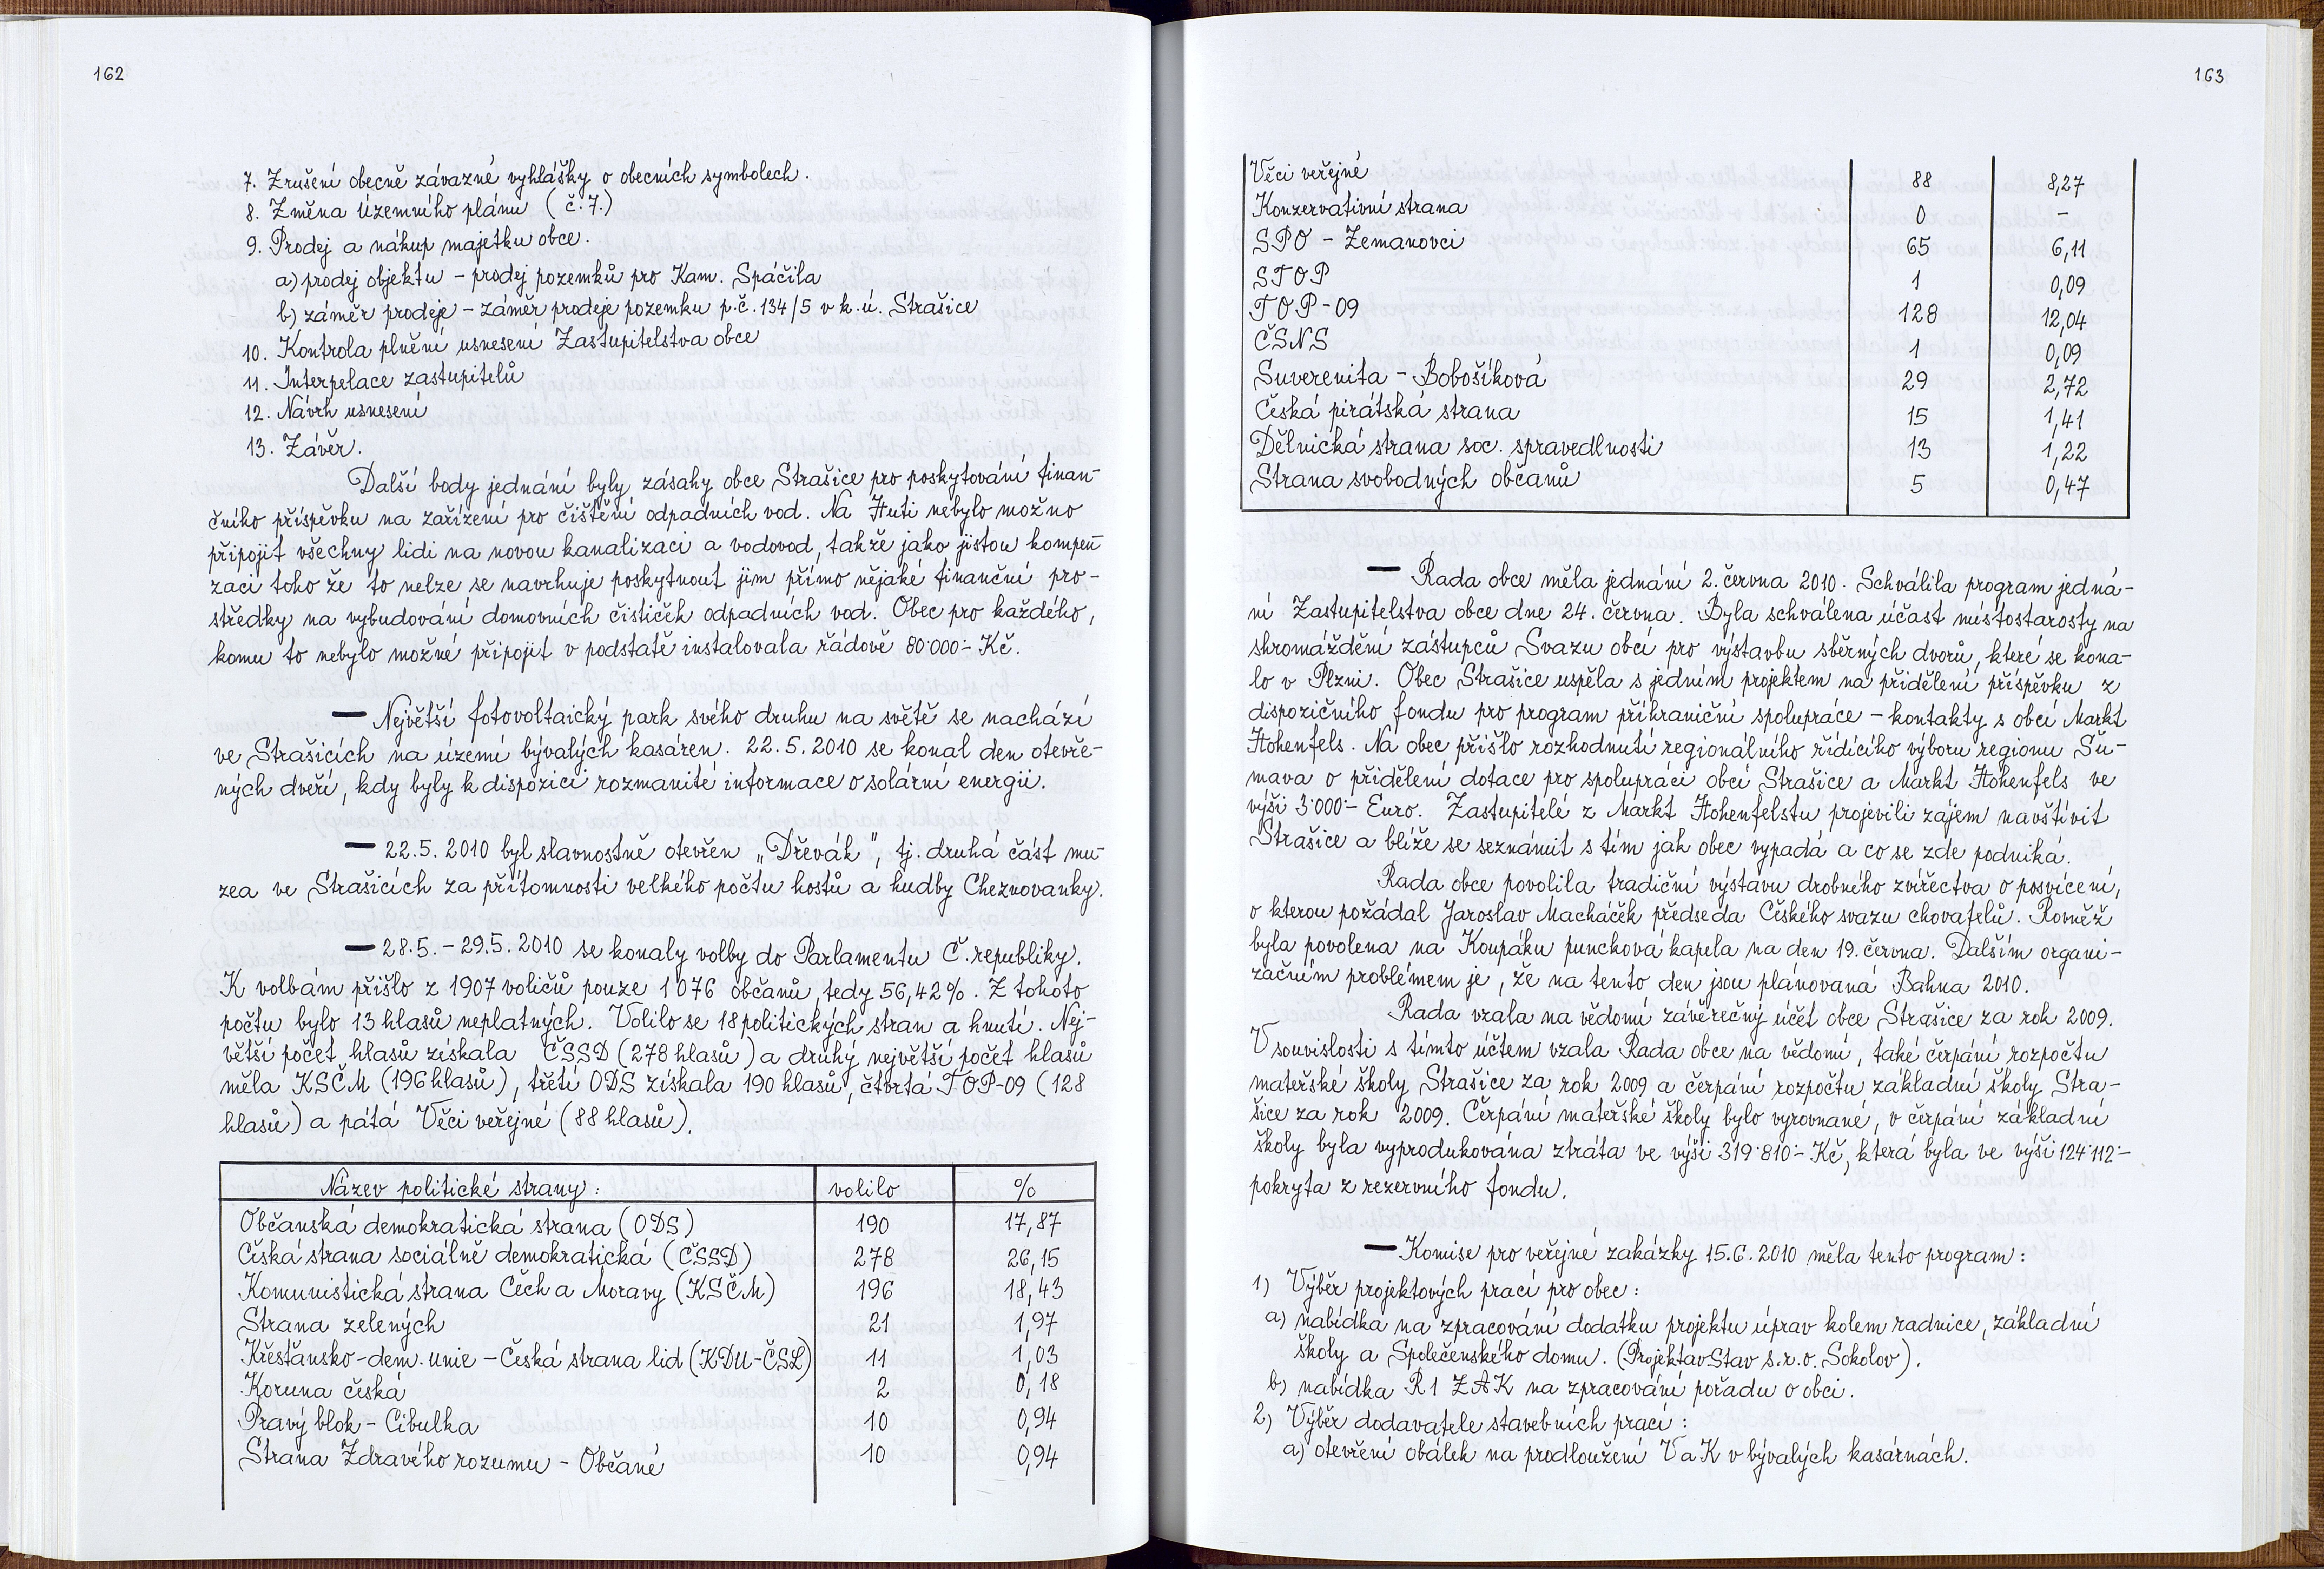 162
7. Zrušení obecně závazné vyhlášky o obecních symbolech.
8. Změna územního plánu (č.7.)
9. Prodej a nákup majetku obce.
a) prodej objektu - prodej pozemků pro Kam. Spáčila
b) záměr prodeje - záměr prodeje pozemku p.č. 134/5 v k.ú. Strašice
10. Kontrola plnění usnesení Zastupitelstva obce
11. Interpelace zastupitelů
12. Návrh usnesení
13. Závěr.
Další body jednání byly zásahy obce Strašice pro poskytování finan-
čního příspěvku na zařízení pro čištění odpadních vod. Na Huti nebylo možno
připojit všechny lidi na novou kanalizaci a vodovod, takže jako jistou kompen-
zaci toho že to nelze se navrhuje poskytnout jim přímo nějaké finanční pro-
středky na vybudování domovních čističek odpadních vod. Obec pro každého,
komu to nebylo možné připojit v podstatě instalovala řádově 80·000- Kč.
— Největší fotovoltaický park svého druhu na světě se nachází
ve Strašicích na území bývalých kasáren. 22.5.2010 se konal den otevře-
ných dveří, kdy byly k dispozici rozmanité informace o solární energii.
— 22.5. 2010 byl slavnostně otevřen „Dřevák", tj. druhá část mu-
zea ve Strašicích za přítomnosti velkého počtu hostů a hudby Cheznovanky.
— 28.5. - 29.5. 2010 se konaly volby do Parlamentu Č. republiky.
K volbám přišlo z 1907 voličů pouze 1076 občanů, tedy 56,42%. Z tohoto
počtu bylo 13 hlasů neplatných. Volilo se 18 politických stran a hnutí. Nej-
větší počet hlasů získala ČSSD (278 hlasů) a druhý největší počet hlasů
měla KSČM (196 hlasů), třetí ODS získala 190 hlasů, čtvrtá TOP-09 (128
hlasů) a pátá Věci veřejné (88 hlasů).
Název politické strany: volilo %
Občanská demokratická strana (ODS) 190 17,87
Česká strana sociálně demokratická (ČSSD) 278 26,15
Komunistická strana Čech a Moravy (KSČM) 196 18,43
Strana zelených 21 1,97
Křesťansko-dem. unie - Česká strana lid (KDU-ČSL) 11 1,03
Koruna česká 2 0,18
Pravý blok - Cibulka 10 0,94
Strana Zdravého rozumu - Občané 10 0,94
163
Věci veřejné 88 8,27
Konzervativní strana 0 -
SPO - Zemanovci 65 6,11
STOP 1 0,09
TOP-09 128 12,04
ČSNS 1 0,09
Suverenita - Bobošíková 29 2,72
Česká pirátská strana 15 1,41
Dělnická strana soc. spravedlnosti 13 1,22
Strana svobodných občanů 5 0,47
— Rada obce měla jednání 2. června 2010. Schválila program jedná-
ní Zastupitelstva obce dne 24. června. Byla schválena účast místostarosty na
shromáždění zástupců Svazu obcí pro výstavbu sběrných dvorů, které se kona-
lo v Plzni. Obec Strašice uspěla s jedním projektem na přidělení příspěvku z
dispozičního fondu pro program příhraniční spolupráce - kontakty s obcí Markt
Hohenfels. Na obec přišlo rozhodnutí regionálního řídícího výboru regionu Šu-
mava o přidělení dotace pro spolupráci obcí Strašice a Markt Hohenfels ve
výši 3·000- Euro. Zastupitelé z Markt Hohenfelstu projevili zájem navštívit
Strašice a blíže se seznámit s tím jak obec vypadá a co se zde podniká.
Rada obce povolila tradiční výstavu drobného zvířectva o posvícení,
o kterou požádal Jaroslav Macháček předseda Českého svazu chovatelů. Rovněž
byla povolena na Koupáku puncková kapela na den 19. června. Dalším organi-
začním problémem je, že na tento den jsou plánovaná Bahna 2010.
Rada vzala na vědomí závěrečný účet obce Strašice za rok 2009.
V souvislosti s tímto účtem vzala Rada obce na vědomí, také čerpání rozpočtu
mateřské školy Strašice za rok 2009 a čerpání rozpočtu základní školy Stra-
šice za rok 2009. Čerpání mateřské školy bylo vyrovnané, v čerpání základní
školy byla vyprodukována ztráta ve výši 319·810- Kč, která byla ve výši 124·112-
pokryta z rezervního fondu.
— Komise pro veřejné zakázky 15.6.2010 měla tento program:
1) Výběr projektových prací pro obec:
a) nabídka na zpracování dodatku projektu úprav kolem radnice, základní
školy a Společenského domu. (ProjektavStav s.r.o. Sokolov).
b) nabídka R1 ZAK na zpracování pořadu o obci.
2) Výběr dodavatele stavebních prací:
a) otevření obálek na prodloužení VaK v bývalých kasárnách.